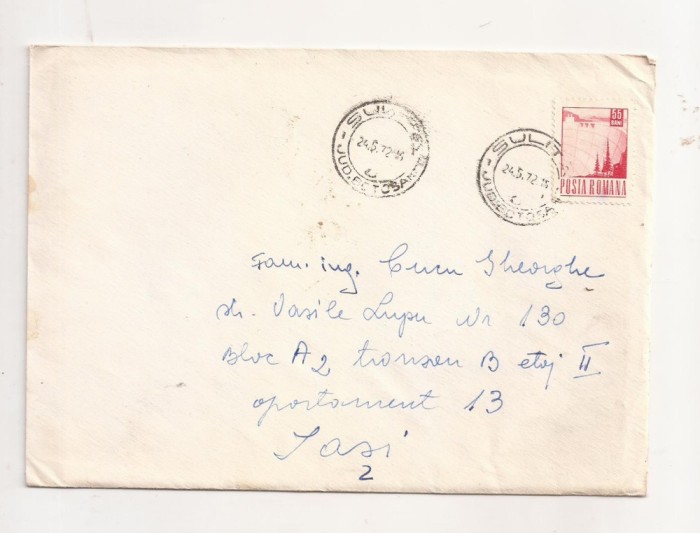 55
BANI
POSTA ROMANA
SULIT
24.5.72
JUD. BOTOSANI
SULIT
24.5.72
JUD. BOTOSANI
Fam. ing. Cucu Gheorghe
str. Vasile Lupu Nr 130
Bloc A2, tronson B etaj II
apartament 13
Iasi
2